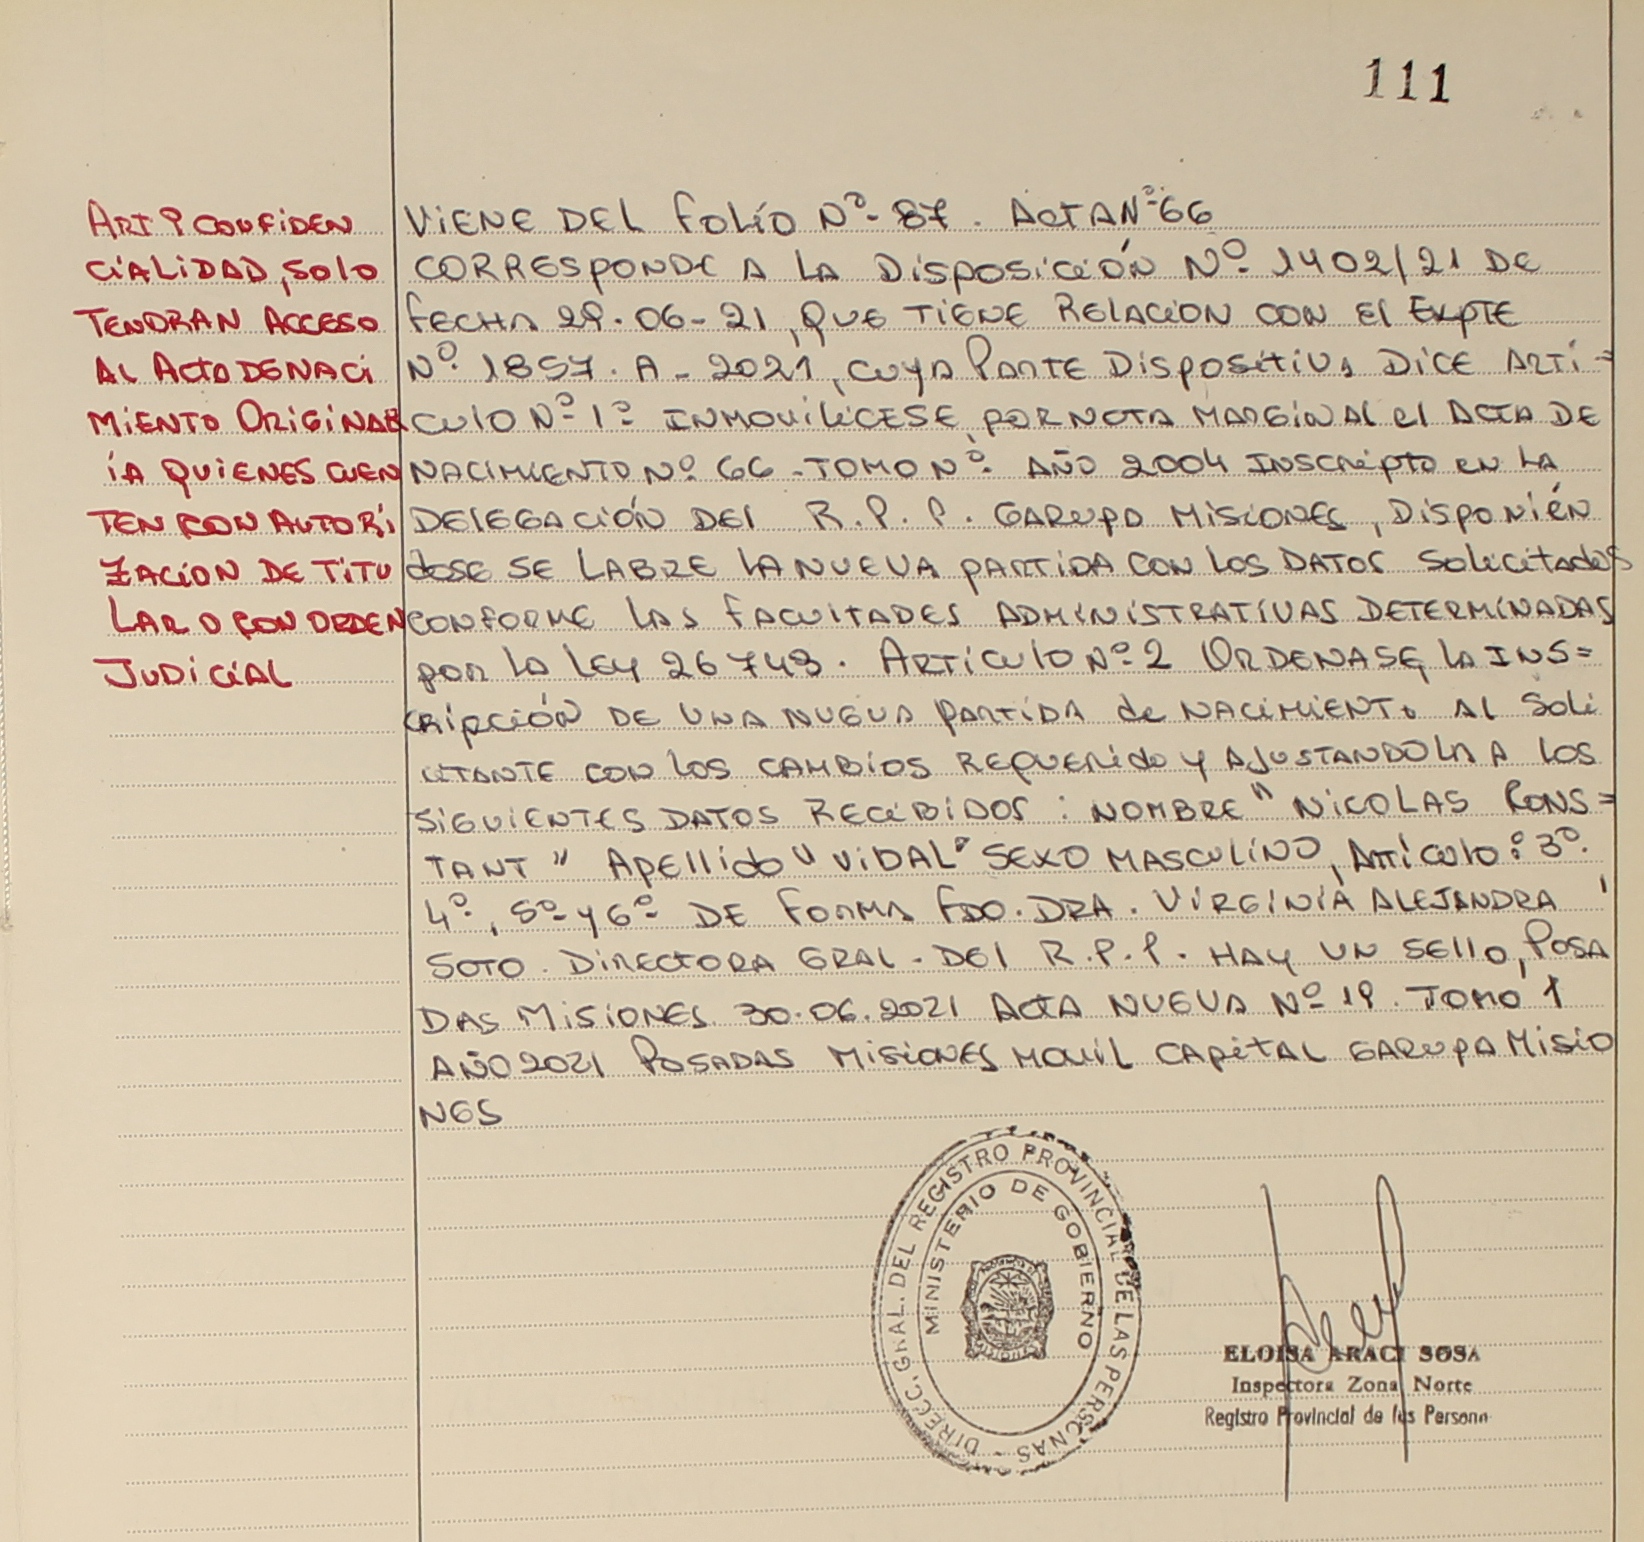 111
ART 9 CONFIDEN
CIALIDAD, SOLO
TENDRAN ACCESO
AL ACTO DE NACI
MIENTO ORIGINAR
IA QUIENES CUEN
TEN CON AUTORI
ZACION DE TITU
LAR O CON ORDEN
JUDICIAL
VIENE DEL FOLIO Nº- 87. ACTA Nº 66
CORRESPONDE A LA DISPOSICIÓN Nº- 1402/21 DE
FECHA 29-06-21, QUE TIENE RELACION CON EL EXPTE
Nº 1857. A - 2021, CUYA PARTE DISPOSITIVA DICE ARTI=
CULO Nº 1º INMOVILICESE, POR NOTA MARGINAL EL ACTA DE
NACIMIENTO Nº 66 - TOMO Nº- AÑO 2004 INSCRIPTO EN LA
DELEGACIÓN DEL R.P.P. GARUPA MISIONES, DISPONIÉN
DOSE SE LABRE LA NUEVA PARTIDA CON LOS DATOS SOLICITADOS
CONFORME LAS FACULTADES ADMINISTRATIVAS DETERMINADAS
POR LA LEY 26743. ARTICULO Nº- 2 ORDENASE, LA INS=
CRIPCIÓN DE UNA NUEVA PARTIDA DE NACIMIENTO AL SOLI
CITANTE CON LOS CAMBIOS REQUERIDO Y AJUSTANDOLA A LOS
SIGUIENTES DATOS RECIBIDOS: NOMBRE "NICOLAS CONS=
TANT" APELLIDO "VIDAL" SEXO MASCULINO, ARTÍCULO: 3º.
4º, 5º- Y 6º- DE FORMA FDO. DRA. VIRGINIA ALEJANDRA
SOTO. DIRECTORA GRAL. DEL R.P.P. HAY UN SELLO, POSA
DAS MISIONES 30.06.2021 ACTA NUEVA Nº 19. TOMO 1
AÑO 2021 POSADAS MISIONES MOVIL CAPITAL GARUPA MISIO
NES
DIRECC. GRAL. DEL REGISTRO PROVINCIAL DE LAS PERSONAS -
MINISTERIO DE GOBIERNO
ELOISA ARACI SOSA
Inspectora Zona Norte
Registro Provincial de las Persona